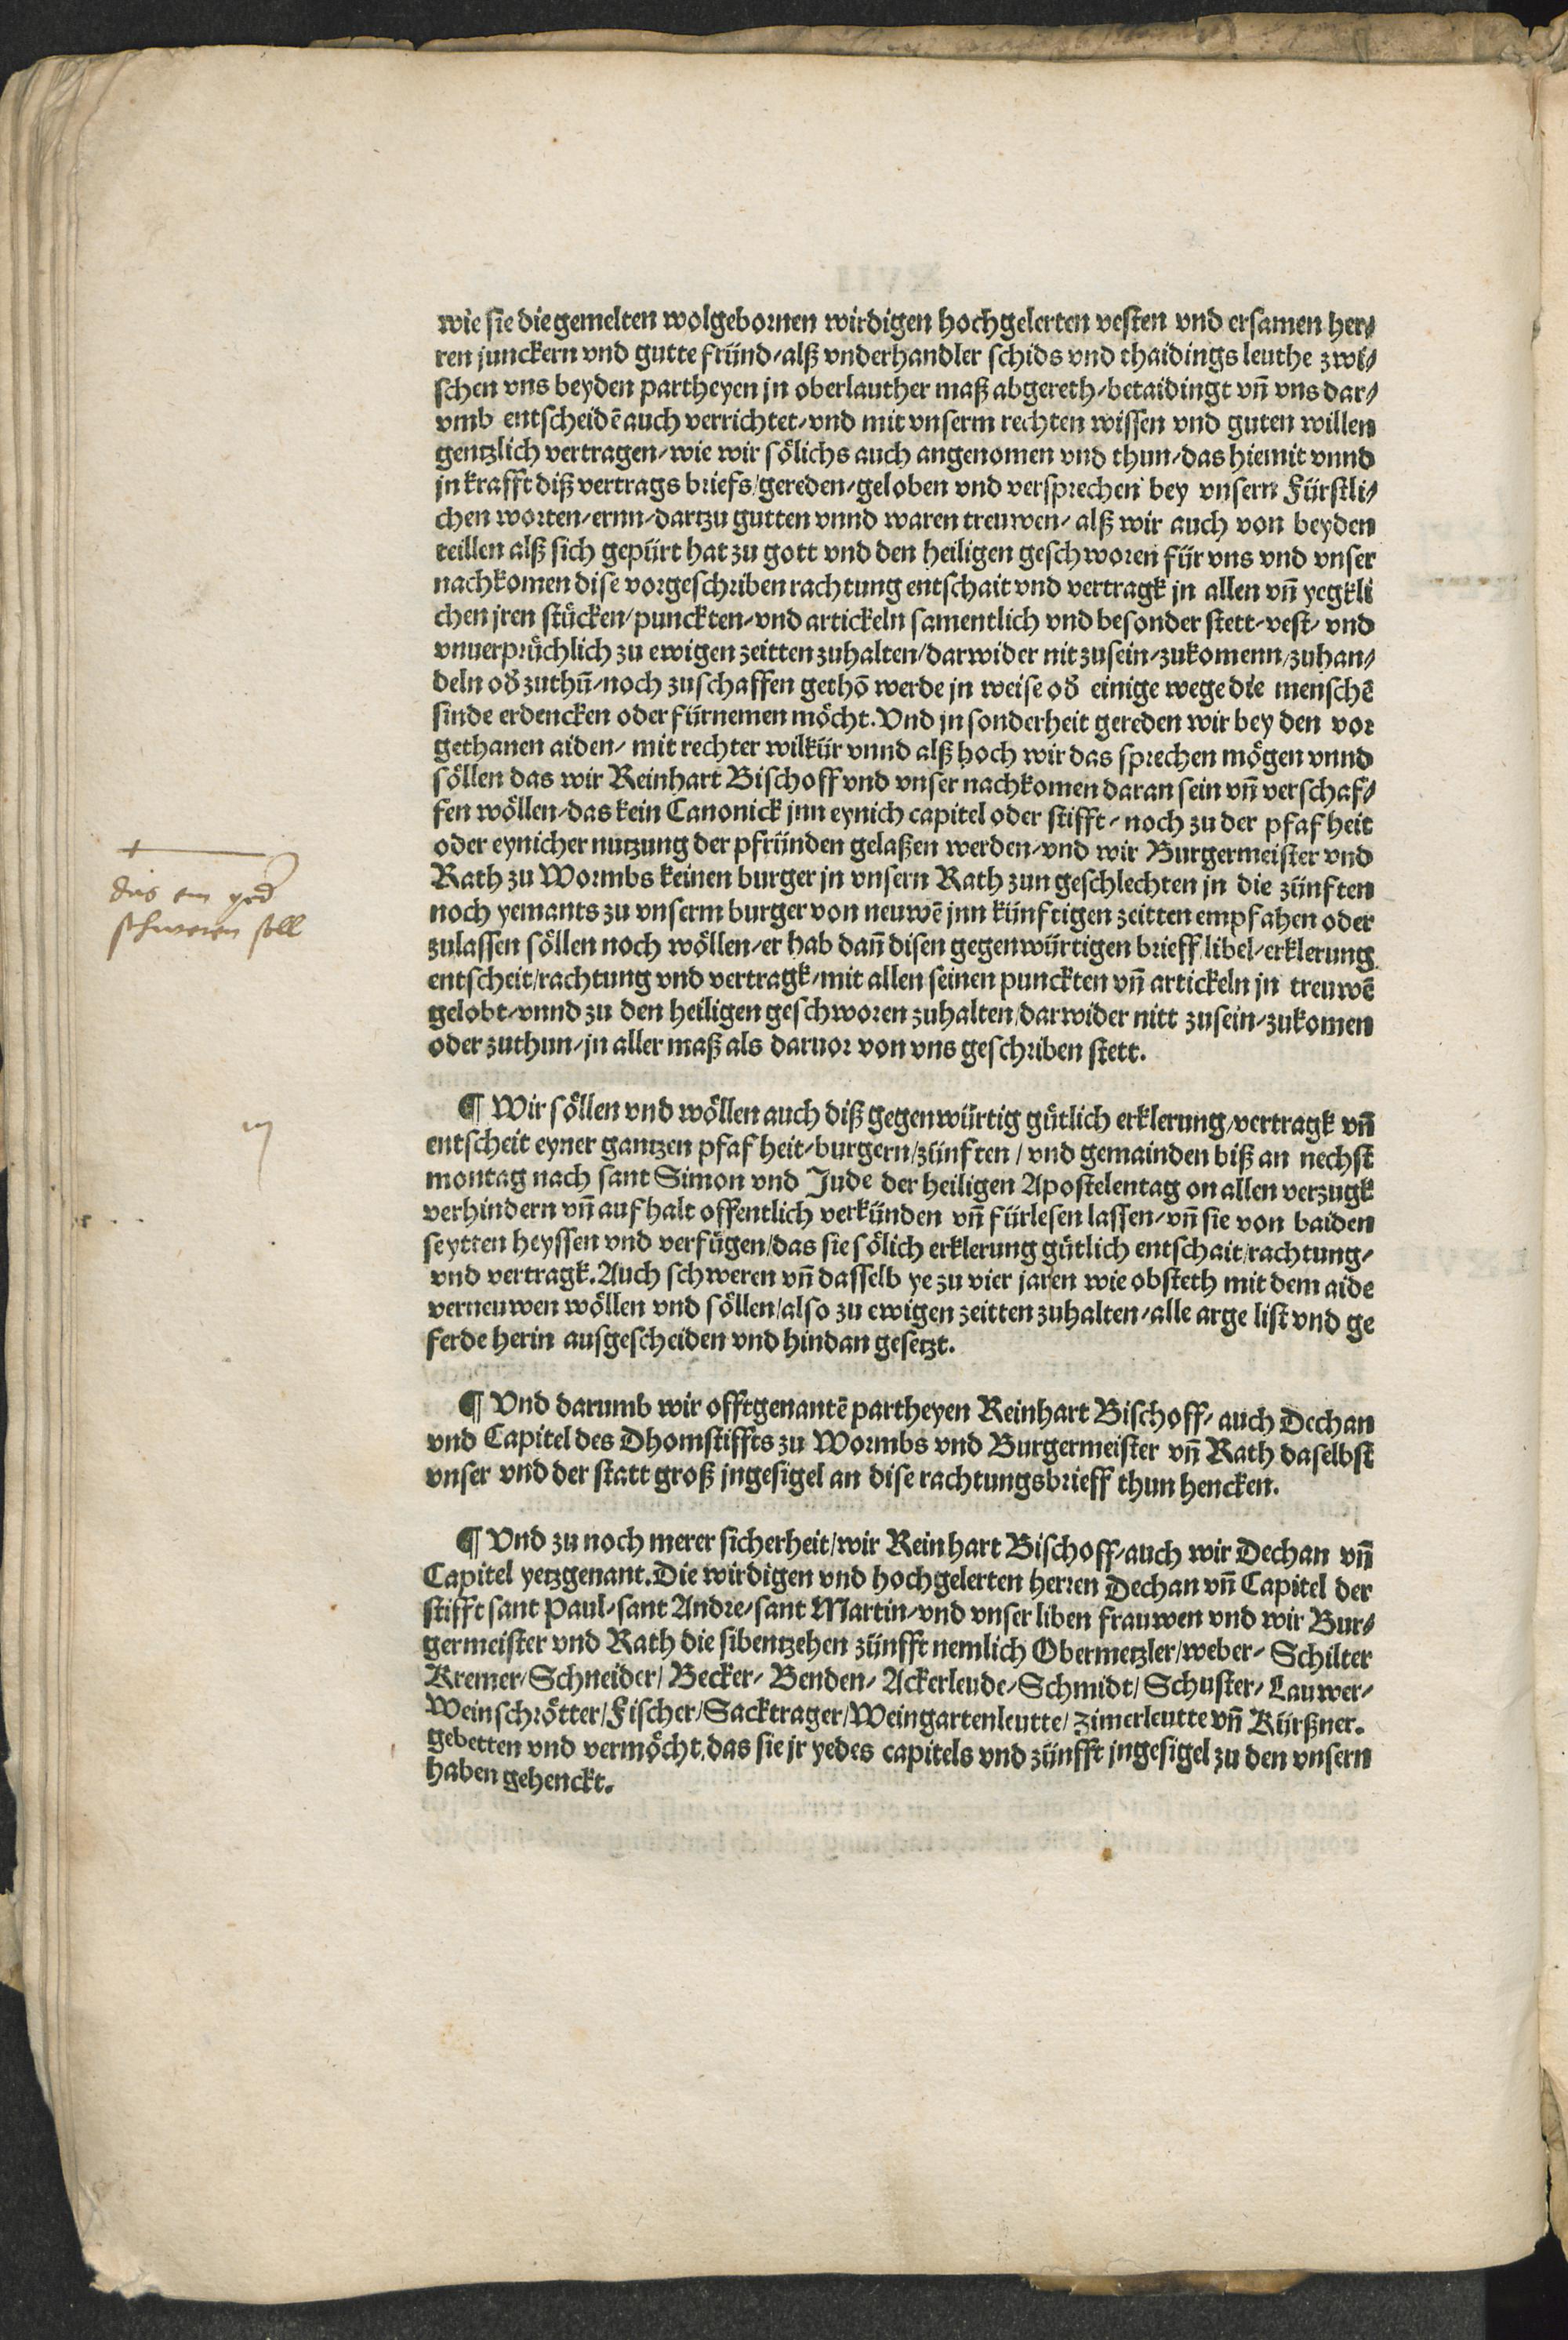 wie sie die gemelten wolgebornen wirdigen hochgelerten vesten vnd ersamen her⸗
ren junckern vnd gutte fründ/alß vnderhandler schids vnd thaidings leuthe zwi⸗
schen vns beyden partheyen jn oberlauther maß abgereth/betaidingt vn̄ vns dar⸗
vmb entscheidē auch verrichtet/vnd mit vnserm rechten wissen vnd guten willen
gentzlich vertragen/wie wir sölichs auch angenomen vnd thun/das hiemit vnnd
jn krafft diß vertrags briefs/gereden/geloben vnd versprechen bey vnsern Fürstli⸗
chen worten/ernn/dartzu gutten vnnd waren treuwen/ alß wir auch von beyden
teillen alß sich gepürt hat zu gott vnd den heiligen geschworen für vns vnd vnser
nachkomen dise vorgeschriben rachtung entschait vnd vertragk jn allen vn̄ yegkli
chen jren stücken/punckten/vnd artickeln samentlich vnd besonder stett/vest/ vnd
vnuerprüchlich zu ewigen zeitten zuhalten/darwider nit zusein/zukomenn/zuhan⸗
deln od̛ zuthū/noch zuschaffen gethō werde jn weise od̛ einige wege die menschē
sinde erdencken oder fürnemen möcht. Vnd jn sonderheit gereden wir bey den vor
gethanen aiden/ mit rechter wilkür vnnd alß hoch wir das sprechen mögen vnnd
söllen das wir Reinhart Bischoff vnd vnser nachkomen daran sein vn̄ verschaf⸗
fen wöllen/das kein Canonick jnn eynich capitel oder stifft/ noch zu der pfafheit
oder eynicher nutzung der pfründen gelaßen werden/vnd wir Burgermeister vnd
Rath zu Wormbs keinen burger jn vnsern Rath zun geschlechten jn die zünften
noch yemants zu vnserm burger von neuwē jnn künftigen zeitten empfahen oder
zulassen söllen noch wöllen/er hab dan̄ disen gegenwürtigen brieff libel/erklerung
entscheit/rachtung vnd vertragk/mit allen seinen punckten vn̄ artickeln jn treuwē
gelobt/vnnd zu den heiligen geschworen zuhalten/darwider nitt zusein/zukomen
oder zuthun/jn aller maß als daruor von vns geschriben stett.
das ein yed
schweren soll
¶ Wir söllen vnd wöllen auch diß gegenwürtig gütlich erklerung/vertragk vn̄
entscheit eyner gantzen pfafheit/burgern/zünften/ vnd gemainden biß an nechst
montag nach sant Simon vnd Jude der heiligen Apostelentag on allen verzugk
verhindern vn̄ aufhalt offentlich verkünden vn̄ fürlesen lassen/vn̄ sie von baiden
seytten heyssen vnd verfügen/das sie sölich erklerung gütlich entschait/rachtung/
vnd vertragk. Auch schweren vn̄ dasselb ye zu vier jaren wie obsteth mit dem aide
verneuwen wöllen vnd söllen/also zu ewigen zeitten zuhalten/alle arge list vnd ge
ferde herin ausgescheiden vnd hindan gesetzt.
¶ Vnd darumb wir offtgenantē partheyen Reinhart Bischoff/ auch Dechan
vnd Capitel des Dhomstiffts zu Wormbs vnd Burgermeister vn̄ Rath daselbst
vnser vnd der statt groß jngesigel an dise rachtungsbrieff thun hencken.
¶ Vnd zu noch merer sicherheit/wir Reinhart Bischoff/auch wir Dechan vn̄
Capitel yetzgenant. Die wirdigen vnd hochgelerten herren Dechan vn̄ Capitel der
stifft sant Paul/sant Andre/sant Martin/vnd vnser liben frauwen vnd wir Bur⸗
germeister vnd Rath die sibentzehen zünfft nemlich Obermetzler/weber/ Schilter
Kremer/Schneider/ Becker/ Benden/ Ackerleude/Schmidt/ Schuster/ Lauwer/
Weinschrötter/Fischer/Sacktrager/Weingartenleutte/ zimerleutte vn̄ Kürßner.
gebetten vnd vermöcht, das sie jr yedes capitels vnd zünfft jngesigel zu den vnsern
haben gehenckt.